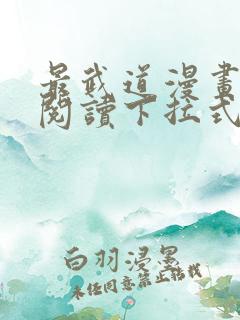 最武道漫畫
閱讀下拉式
白羽浸墨
未经同意禁止转载